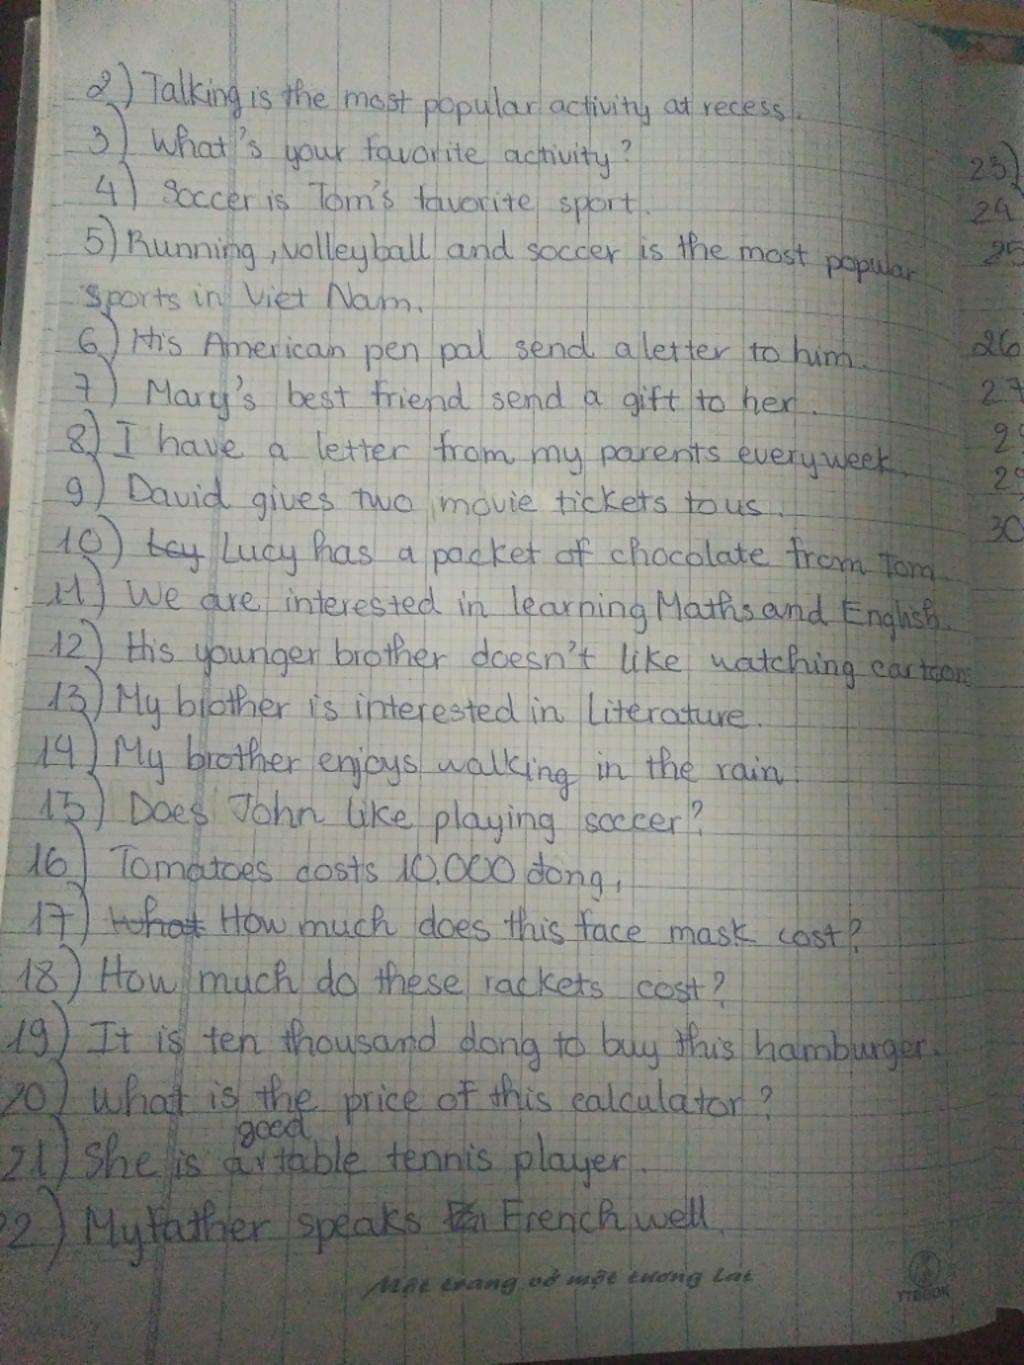 2) Talking is the most popular activity at recess.
3) What's your favorite activity?
4) Soccer is Tom's favorite sport.
5) Running, volleyball and soccer is the most popular
sports in Viet Nam.
6) His American pen pal send a letter to him.
7) Mary's best friend send a gift to her.
8) I have a letter from my parents every week.
9) David gives two movie tickets to us.
10) Lucy has a packet of chocolate from Tom.
11) We are interested in learning Maths and English.
12) His younger brother doesn't like watching cartoons
13) My brother is interested in Literature.
14) My brother enjoys walking in the rain
15) Does John like playing soccer?
16) Tomatoes costs 10.000 dong.
17) What How much does this face mask cost?
18) How much do these rackets cost?
19) It is ten thousand dong to buy this hamburger.
20) What is the price of this calculator?
21) She is a good table tennis player.
22) My father speaks French well.
Một trang vở một tương lai
YTBOOK
23)
24
25
26
27
29
30